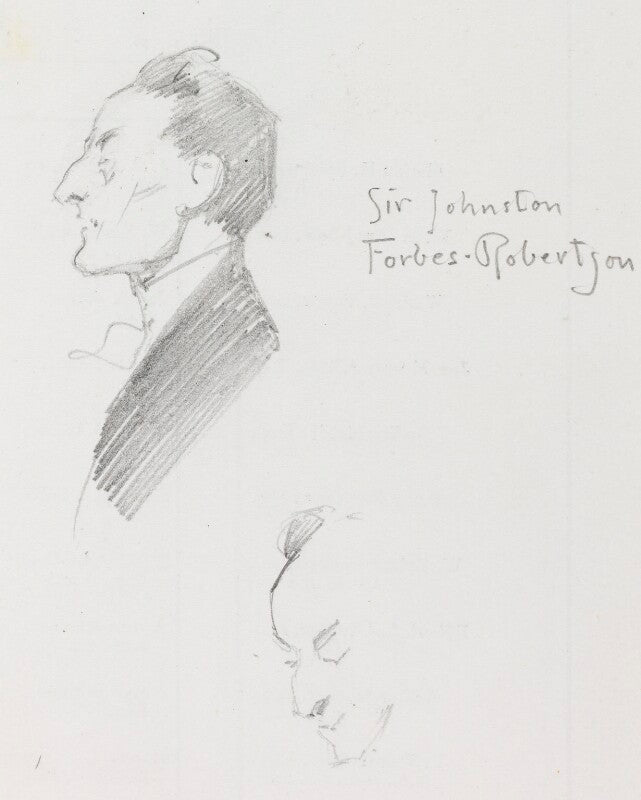 Sir Johnston
Forbes-Robertson